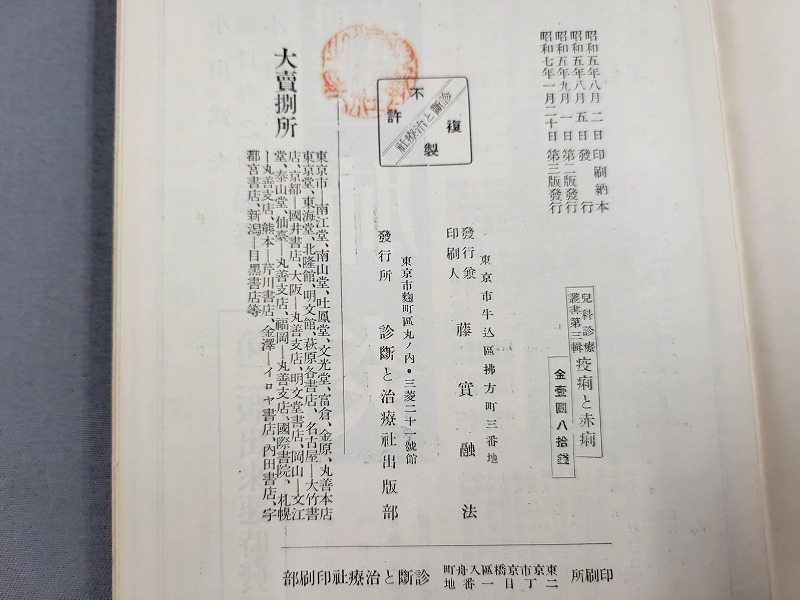 昭和五年八月二日印刷納本
昭和五年八月五日發行
昭和五年九月一日第二版發行
昭和七年一月二十日第三版發行
兒科診療
叢書第三輯
疫痢と赤痢
金壹圓八拾錢
不許
複製
診斷と治療社
東京市牛込區拂方町三番地
發行兼
印刷人
藤實融法
東京市麴町區丸ノ内・三菱二十一號館
發行所 診斷と治療社出版部
大賣捌所
東京市―南江堂、南山堂、吐鳳堂、文光堂、富倉、金原、丸善本店
東京堂、東海堂、北隆館、明文館、萩原各書店、名古屋―大竹書
店、京都―國井書店、大阪―丸善支店、明文堂書店、岡山―文江
堂、泰山堂、仙臺―丸善支店、福岡―丸善支店、國際書院、札幌
―丸善支店、熊本―芹川書店、金澤―イロヤ書店、內田書店、宇
都宮書店、新潟―目黑書店等
印刷所
東京市京橋區入舟町
二丁目一番地
診斷と治療社印刷部